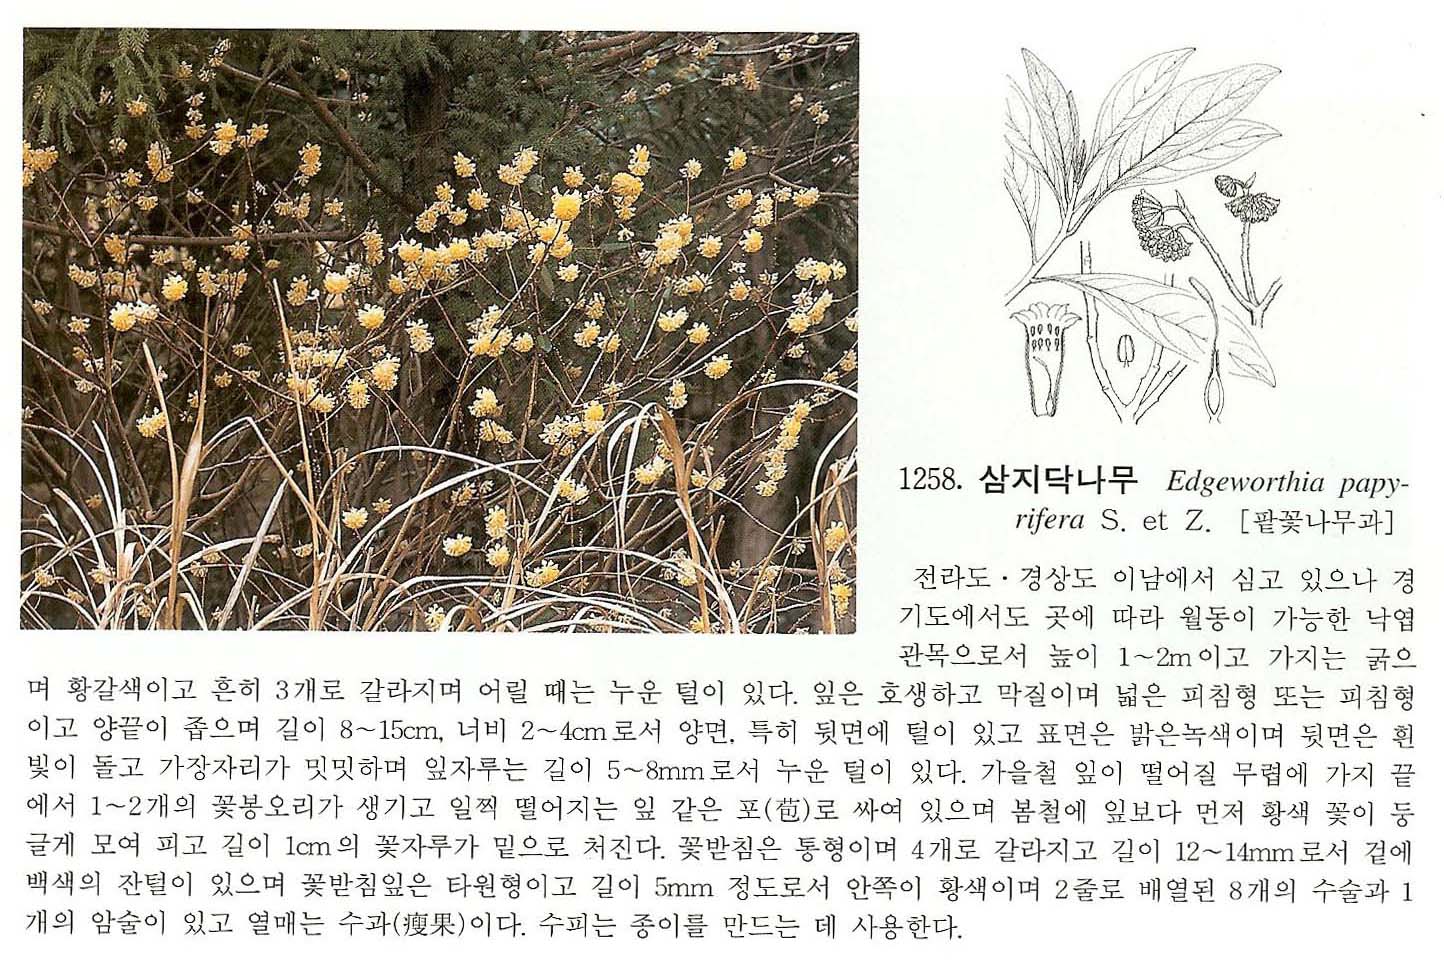 1258. 삼지닥나무 Edgeworthia papy-
rifera S. et Z. [팥꽃나무과]
전라도·경상도 이남에서 심고 있으나 경
기도에서도 곳에 따라 월동이 가능한 낙엽
관목으로서 높이 1~2m이고 가지는 굵으
며 황갈색이고 흔히 3개로 갈라지며 어릴 때는 누운 털이 있다. 잎은 호생하고 막질이며 넓은 피침형 또는 피침형
이고 양끝이 좁으며 길이 8~15cm, 너비 2~4cm로서 양면, 특히 뒷면에 털이 있고 표면은 밝은녹색이며 뒷면은 흰
빛이 돌고 가장자리가 밋밋하며 잎자루는 길이 5~8mm로서 누운 털이 있다. 가을철 잎이 떨어질 무렵에 가지 끝
에서 1~2개의 꽃봉오리가 생기고 일찍 떨어지는 잎 같은 포(苞)로 싸여 있으며 봄철에 잎보다 먼저 황색 꽃이 둥
글게 모여 피고 길이 1cm의 꽃자루가 밑으로 처진다. 꽃받침은 통형이며 4개로 갈라지고 길이 12~14mm로서 겉에
백색의 잔털이 있으며 꽃받침잎은 타원형이고 길이 5mm 정도로서 안쪽이 황색이며 2줄로 배열된 8개의 수술과 1
개의 암술이 있고 열매는 수과(瘦果)이다. 수피는 종이를 만드는 데 사용한다.